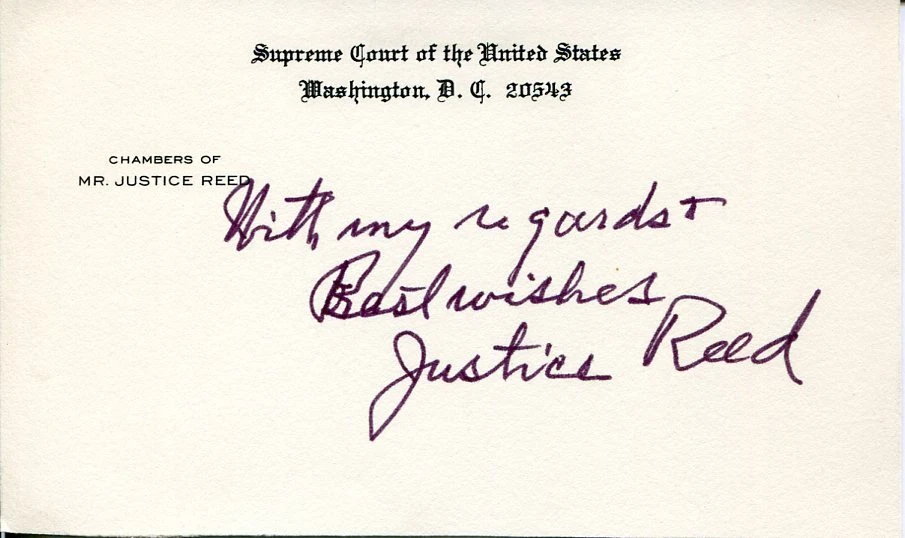 Supreme Court of the United States
Washington, D. C. 20543
CHAMBERS OF
MR. JUSTICE REED
With my regards +
Best wishes
Justice Reed